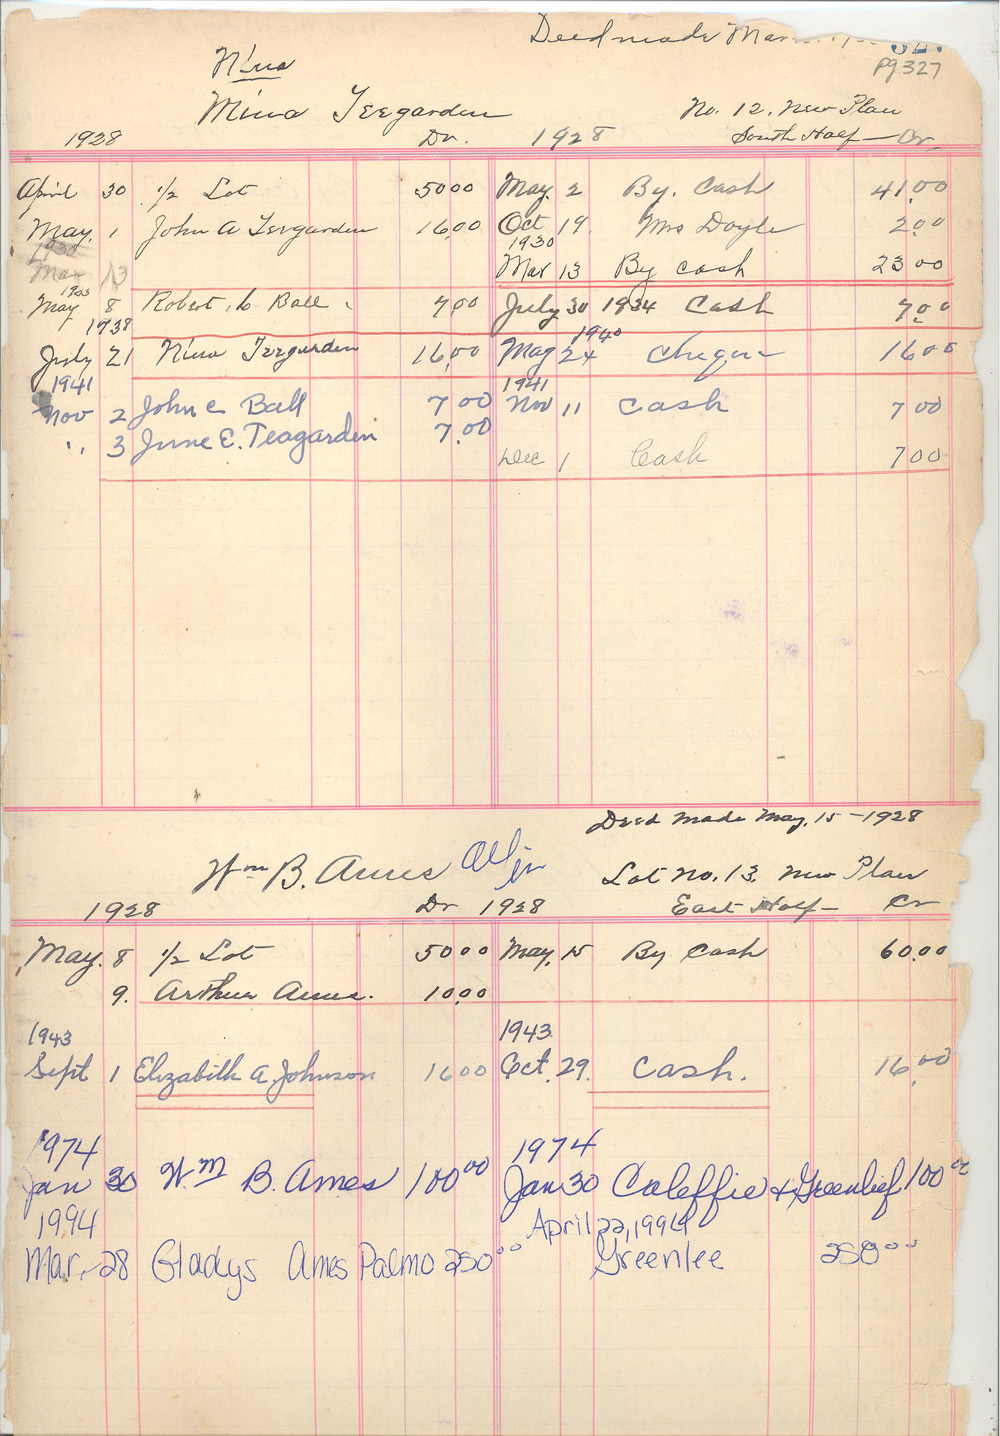 Deed made Mar
pg 327
Nina
Mina Teegarden No. 12. New Plan
1928 Dr. 1928 South Half — Cr.
April 30 1/2 Lot 50 00 May 2 By. Cash 41.00
May. 1 John A Teegarden 16,00 Oct 19. Mrs Doyle 2.00
1930 1930
Mar 13 Mar 13 By cash 23 00
May 8 Robert. L Ball 7,00 July 30 1934 Cash 7.00
1938 1940
July 21 Nina Teegarden 16,00 May 24 Cheque 16 00
1941 1941
Nov 2 John C Ball 7 00 Nov 11 Cash 7 00
" 3 June E. Teagarden 7.00
Dec 1 Cash 7 00
Deed made May, 15 – 1928
Wm B. Ames Lot No. 13. New Plan
1928 Dr 1928 East Half — Cr
May. 8 1/2 Lot 50 00 May, 15 By Cash 60.00
9. Arthur Ames. 10,00
1943 1943
Sept 1 Elizabeth A. Johnson 16 00 Oct. 29. Cash. 16.00
1974 1974
Jan 30 Wm B. Ames 100 00 Jan 30 Caleffie & Greenlief 100 00
1994 April 22, 1994
Mar. 28 Gladys Ames Palmo 250 00 Greenlee 250 00